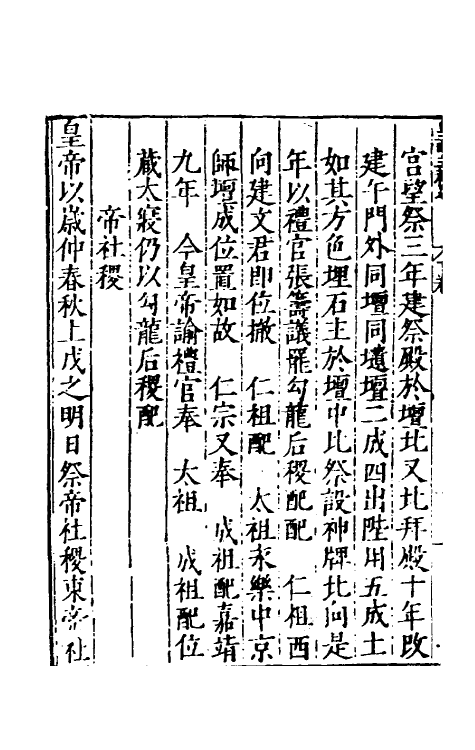 宫望祭三年建祭殿於壇北又北拜殿十年改
建午門外同壇同壝壇二成四出陛用五成土
如其方色埋石主於壇中比祭設神牌北向是
年以禮官張籌議罷勾龍后稷配配 仁祖西
向建文君即位撤 仁祖配 太祖永樂中京
師壇成位置如故 仁宗又奉 成祖配嘉靖
九年 今皇帝諭禮官奉 太祖 成祖配位
藏太寢仍以勾龍后稷配
帝社稷
皇帝以歲仲春秋上戊之明日祭帝社稷東帝社